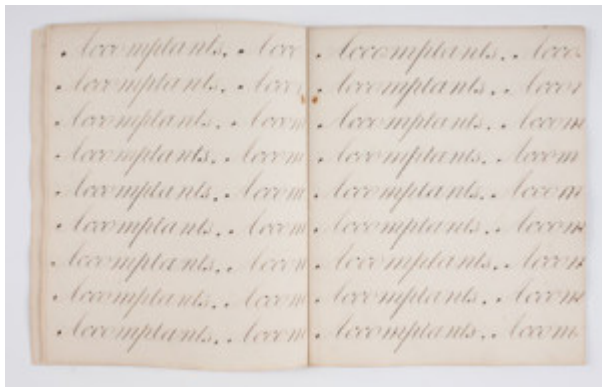 Accomptants. Acco
Accomptants. Acco
Accomptants. Accom
Accomptants. Accom
Accomptants. Accom
Accomptants. Accom
Accomptants. Accon
Accomptants. Accom
Accomptants. Accom
Accomptants. Acco
Accomptants. Acco
Accomptants. Accom
Accomptants. Accom
Accomptants. Accom
Accomptants. Accom
Accomptants. Accom
Accomptants. Accom
Accomptants. Accom